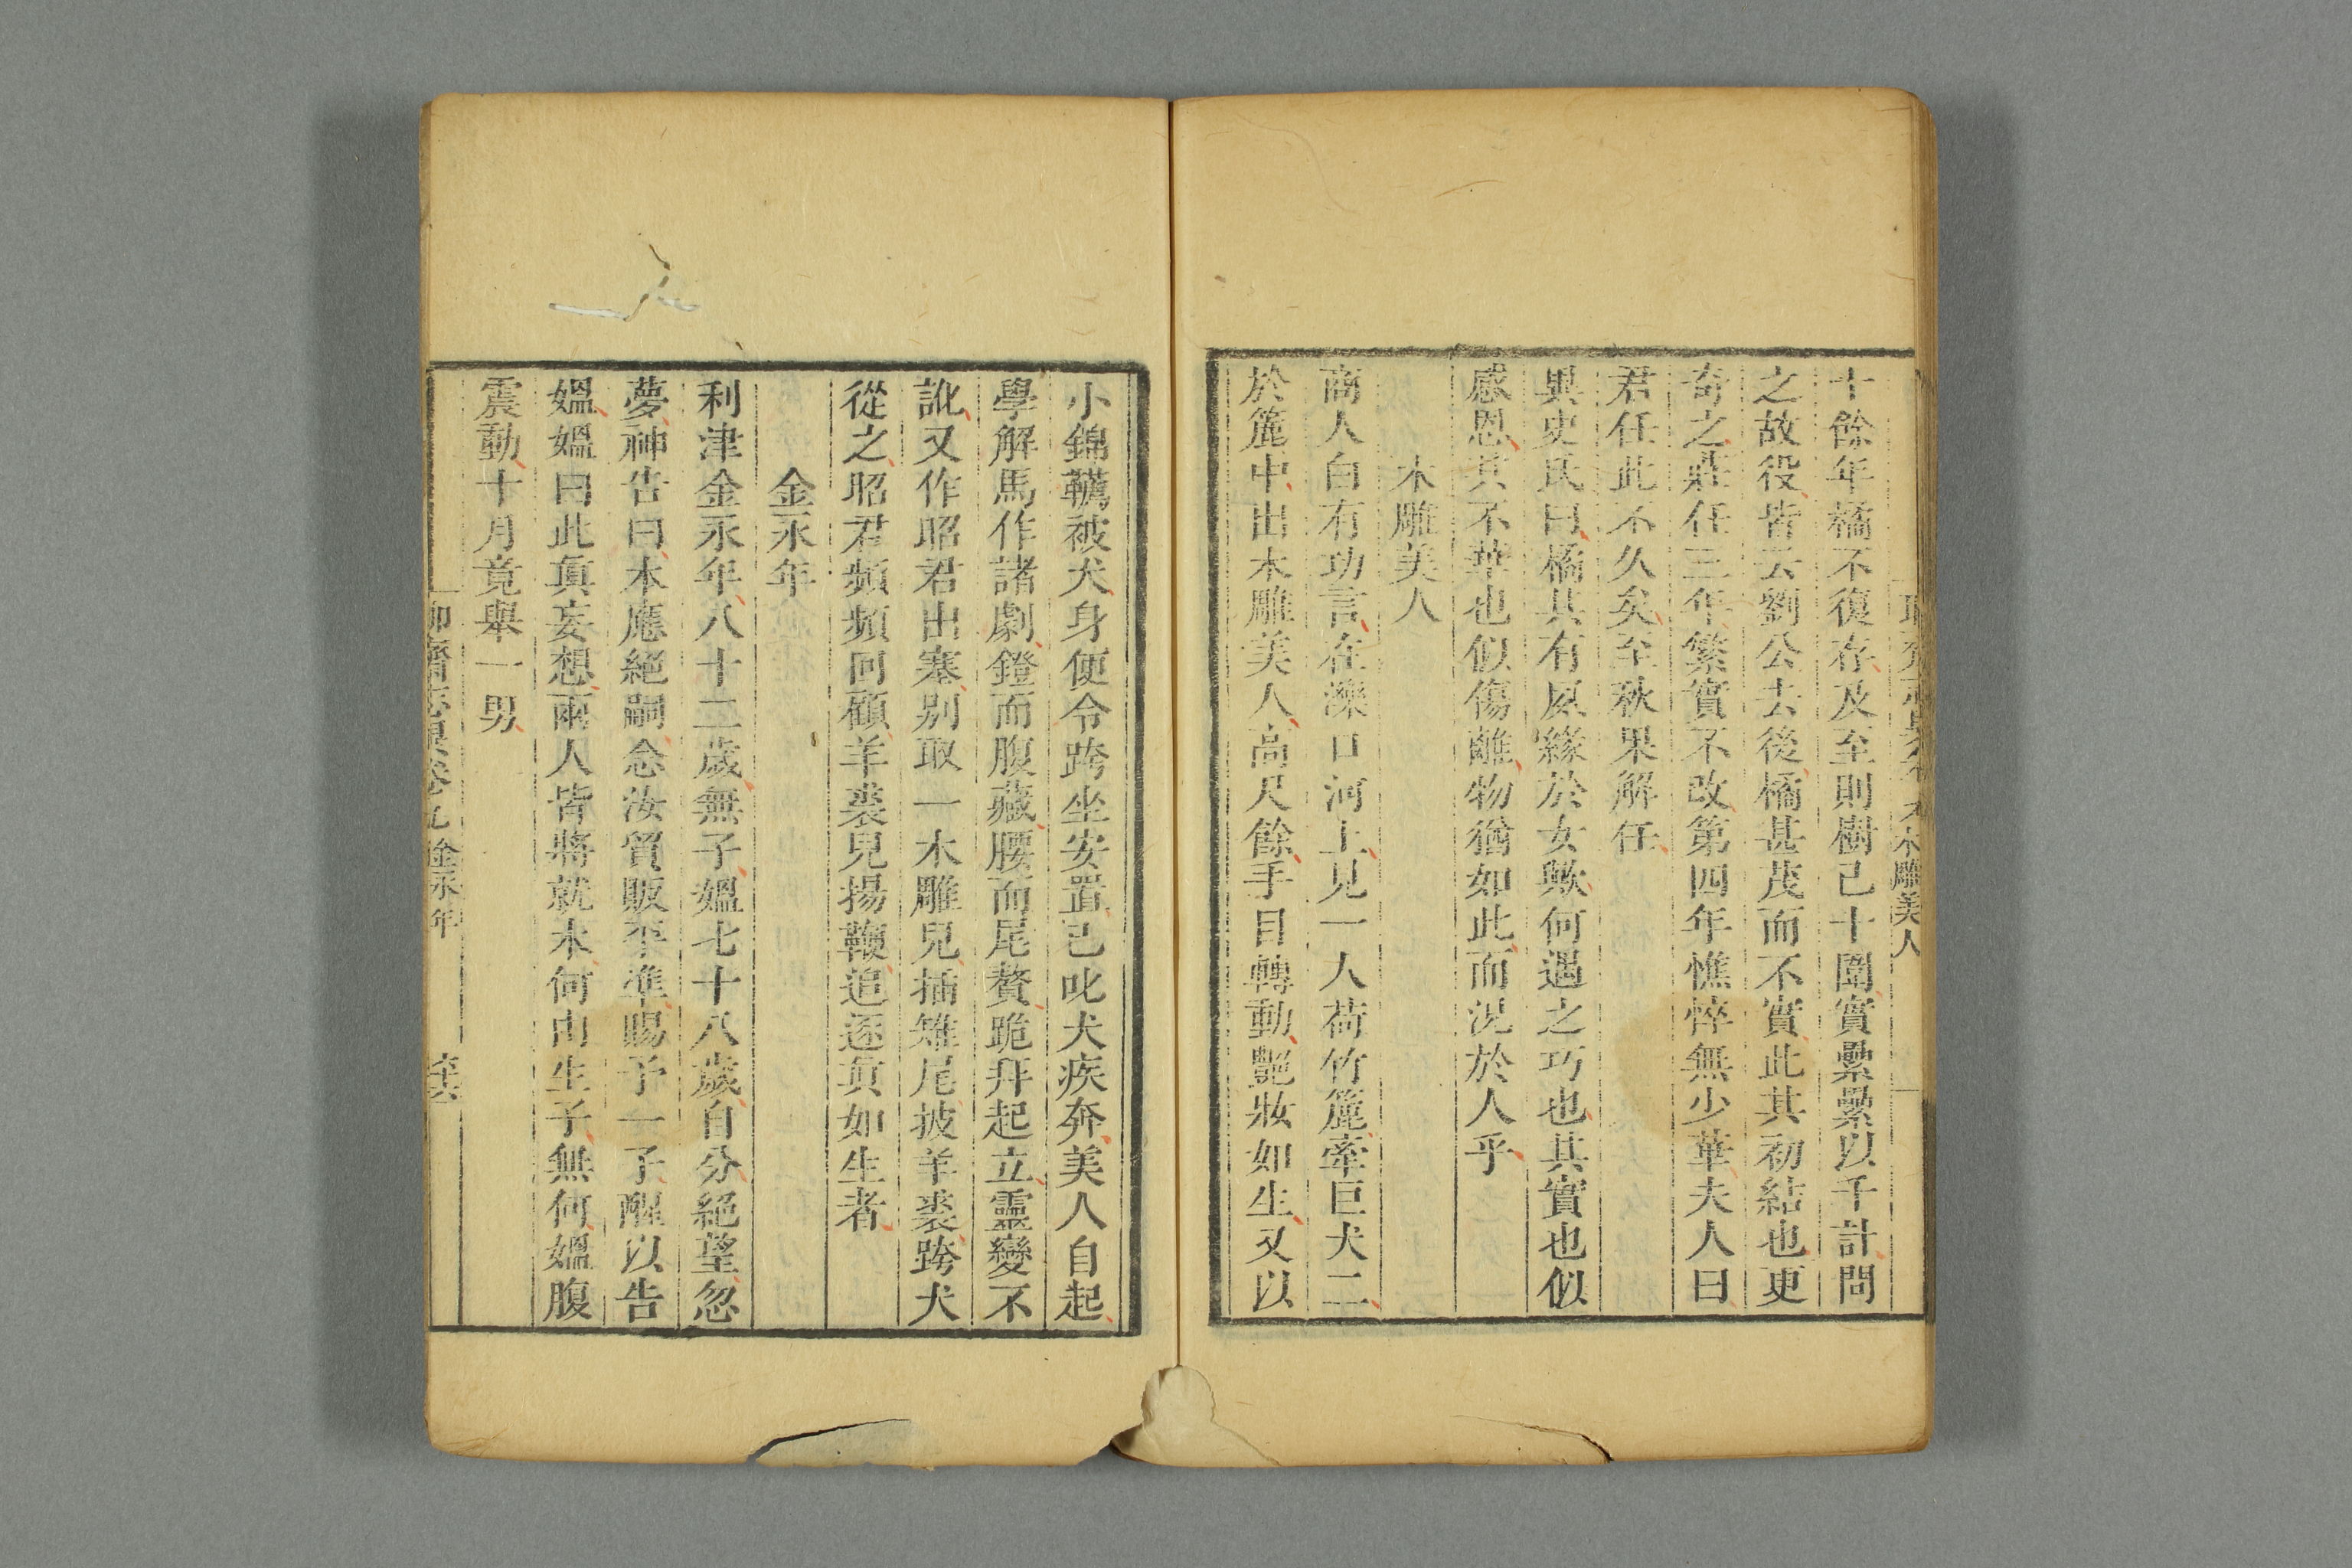 木雕美人
十餘年橘不復存及至則樹已十圍實纍纍以千計問
之故役皆云劉公去後橘甚茂而不實此其初結也更
奇之莊任三年繁實不改第四年憔悴無少華夫人曰
君任此不久矣至秋果解任
異史氏曰橘其有夙緣於女歟何遇之巧也其實也似
感恩其不華也似傷離物猶如此而況於人乎
木雕美人
商人白有功言在濼口河上見一人荷竹簏牽巨犬二
於簏中出木雕美人高尺餘手目轉動艷妝如生又以
小錦韉被犬身便令跨坐安置已叱犬疾奔美人自起
學解馬作諸劇鐙而腹藏腰而尾贅跪拜起立靈變不
訛又作昭君出塞別取一木雕兒插雉尾披羊裘跨犬
從之昭君頻頻回顧羊裘兒揚鞭追逐真如生者
金永年
利津金永年八十二歲無子媼七十八歲自分絕望忽
夢神告曰本應絕嗣念汝貿販平準賜予一子醒以告
媼媼曰此真妄想兩人皆將就木何由生子無何媼腹
震動十月竟舉一男
聊齋志異卷九 金永年